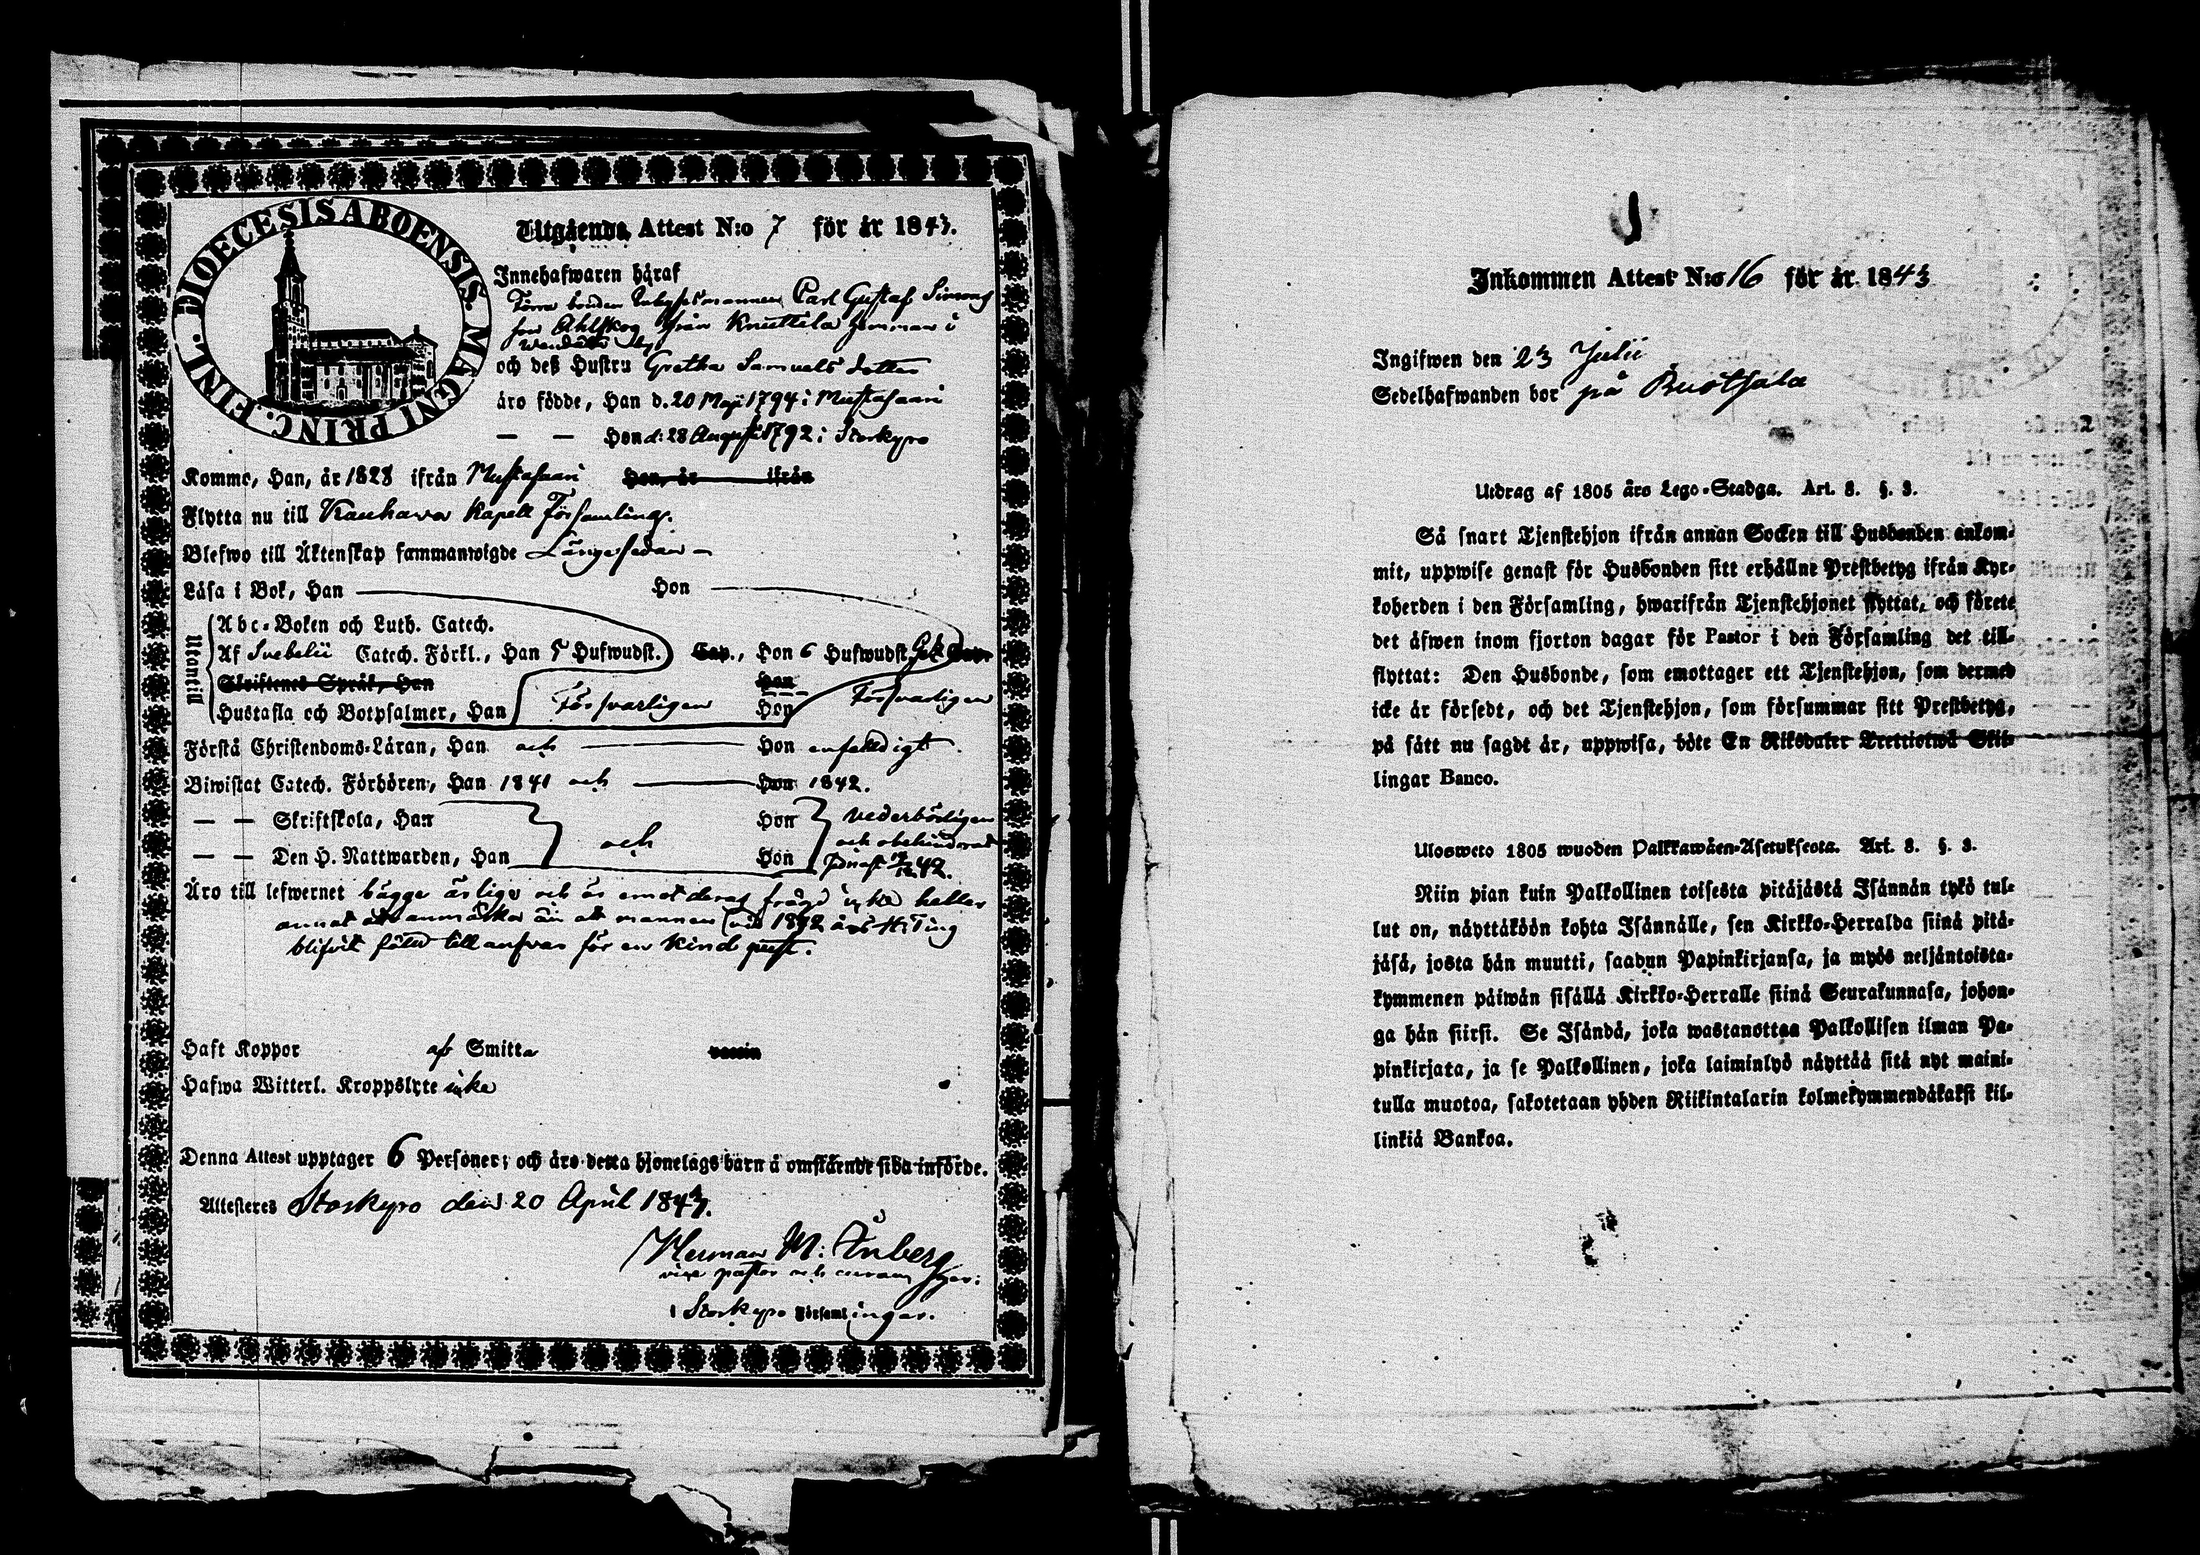 DIOECESIS ABOENSIS. MAGNI PRINC. FINL.
Utgående Attest N:o 7 för år 1843.
Innehafwaren häraf
Förre bonden Carl Gustaf Simons
son Ahlskog från Knuttila hemman i
by
och deß Hustru Gretha Samuels dotter
äro födde, Han d. 20 Maji 1794 i Mustasaari
— — Hon d: 28 Augusti 1792 i Storkyro
Komne, Han, år 1828 ifrån Mustasaari Hon, år ifrån
Flytta nu till Kauhava Kapell Församling.
Blefwo till Äktenskap sammanwigde Längesedan –
Läsa i Bok, Han Hon
Utantill
Abc-Boken och Luth. Catech.
Af Svebelii Catech. Förkl., Han 5 Hufwudst. Cap., Hon 6 Hufwudst.
Skriftenes Språk, Han Hon
Hustafla och Botpsalmer, Han Försvarligen Hon Försvarligen
Förstå Christendoms-Läran, Han och Hon enfaldigt.
Biwistat Catech. Förhören, Han 1841 och Hon 1842.
— — Skriftskola, Han Hon vederbörligen
och och obehindrad
— — Den H. Nattwarden, Han Hon sednast 42.
Äro till lefwernet bägge ärlige och är emot deras frägd icke heller
annat att anmärka än att mannen vid 1842 års H. Ting
blifvit fäld till ansvar för en Kindpust.
Haft Koppor af Smitta vaccin
Hafwa Witterl. Kroppslyte icke
Denna Attest upptager 6 Personer; och äro detta hjonelags barn å omstående sida införde.
Attesteres Storkyro den 20 April 1843.
Herman M:
vice pastor och
i Storkyro Församlingar.
Inkommen Attest N:o 16 för år 1843
Ingifwen den 23 Julii
Sedelhafwanden bor på Ruotsala
Utdrag af 1805 års Lego-Stadga. Art. 8. §. 3.
Så snart Tjenstehjon ifrån annan Socken till Husbonden ankom-
mit, uppwise genast för Husbonden sitt erhållne Prestbetyg ifrån Kyr-
koherden i den Församling, hwarifrån Tjenstehjonet flyttat, och förete
det äfwen inom fjorton dagar för Pastor i den Församling det till-
flyttat: Den Husbonde, som emottager ett Tjenstehjon, som dermed
icke är försedt, och det Tjenstehjon, som försummar sitt Prestbetyg,
på sätt nu sagdt är, uppwisa, böte En Riksdaler Trettiotwå Skil-
lingar Banco.
Ulosweto 1805 wuoden Palkkawäen-Asetuksesta. Art. 8. §. 3.
Niin pian kuin Palkollinen toisesta pitäjästä Isännän tykö tul-
lut on, näyttäköön kohta Isännälle, sen Kirkko-Herralda siinä pitä-
jäsä, josta hän muutti, saadun Papinkirjansa, ja myös neljäntoista-
kymmenen päiwän sisällä Kirkko-Herralle siinä Seurakunnasa, johon-
ga hän siirsi. Se Isändä, joka wastanottaa Palkollisen ilman Pa-
pinkirjata, ja se Palkollinen, joka laiminlyö näyttää sitä nyt maini-
tulla muotoa, sakotetaan yhden Riikintalarin kolmekymmendäkaksi kil-
linkiä Bankoa.